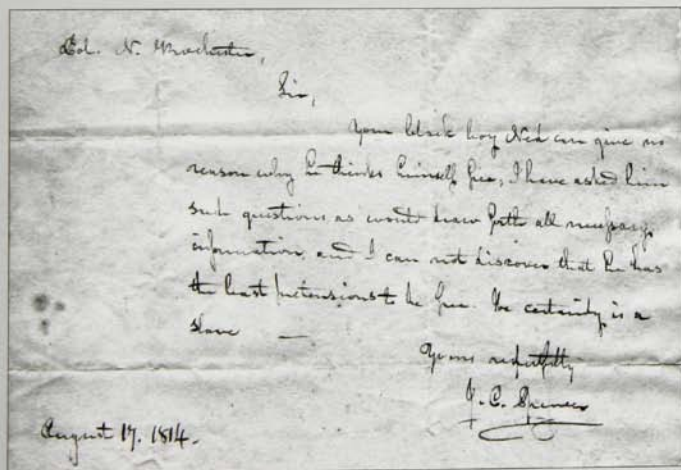 Col. N. Rochester,
Sir,
Your black boy Ned can give no
reason why he thinks himself free, I have asked him
such questions as would draw forth all necessary
information, and I can not discover that he has
the least pretensions to be free. He certainly is a
slave —
Yours respectfully
J. C. Spencer
August 17. 1814.